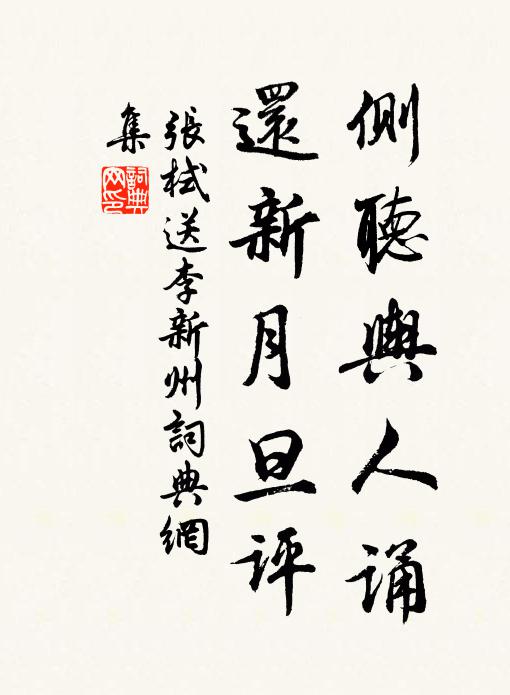 側聽輿人誦
還新月旦評
張栻送李新州詞典網
集
詞典網印